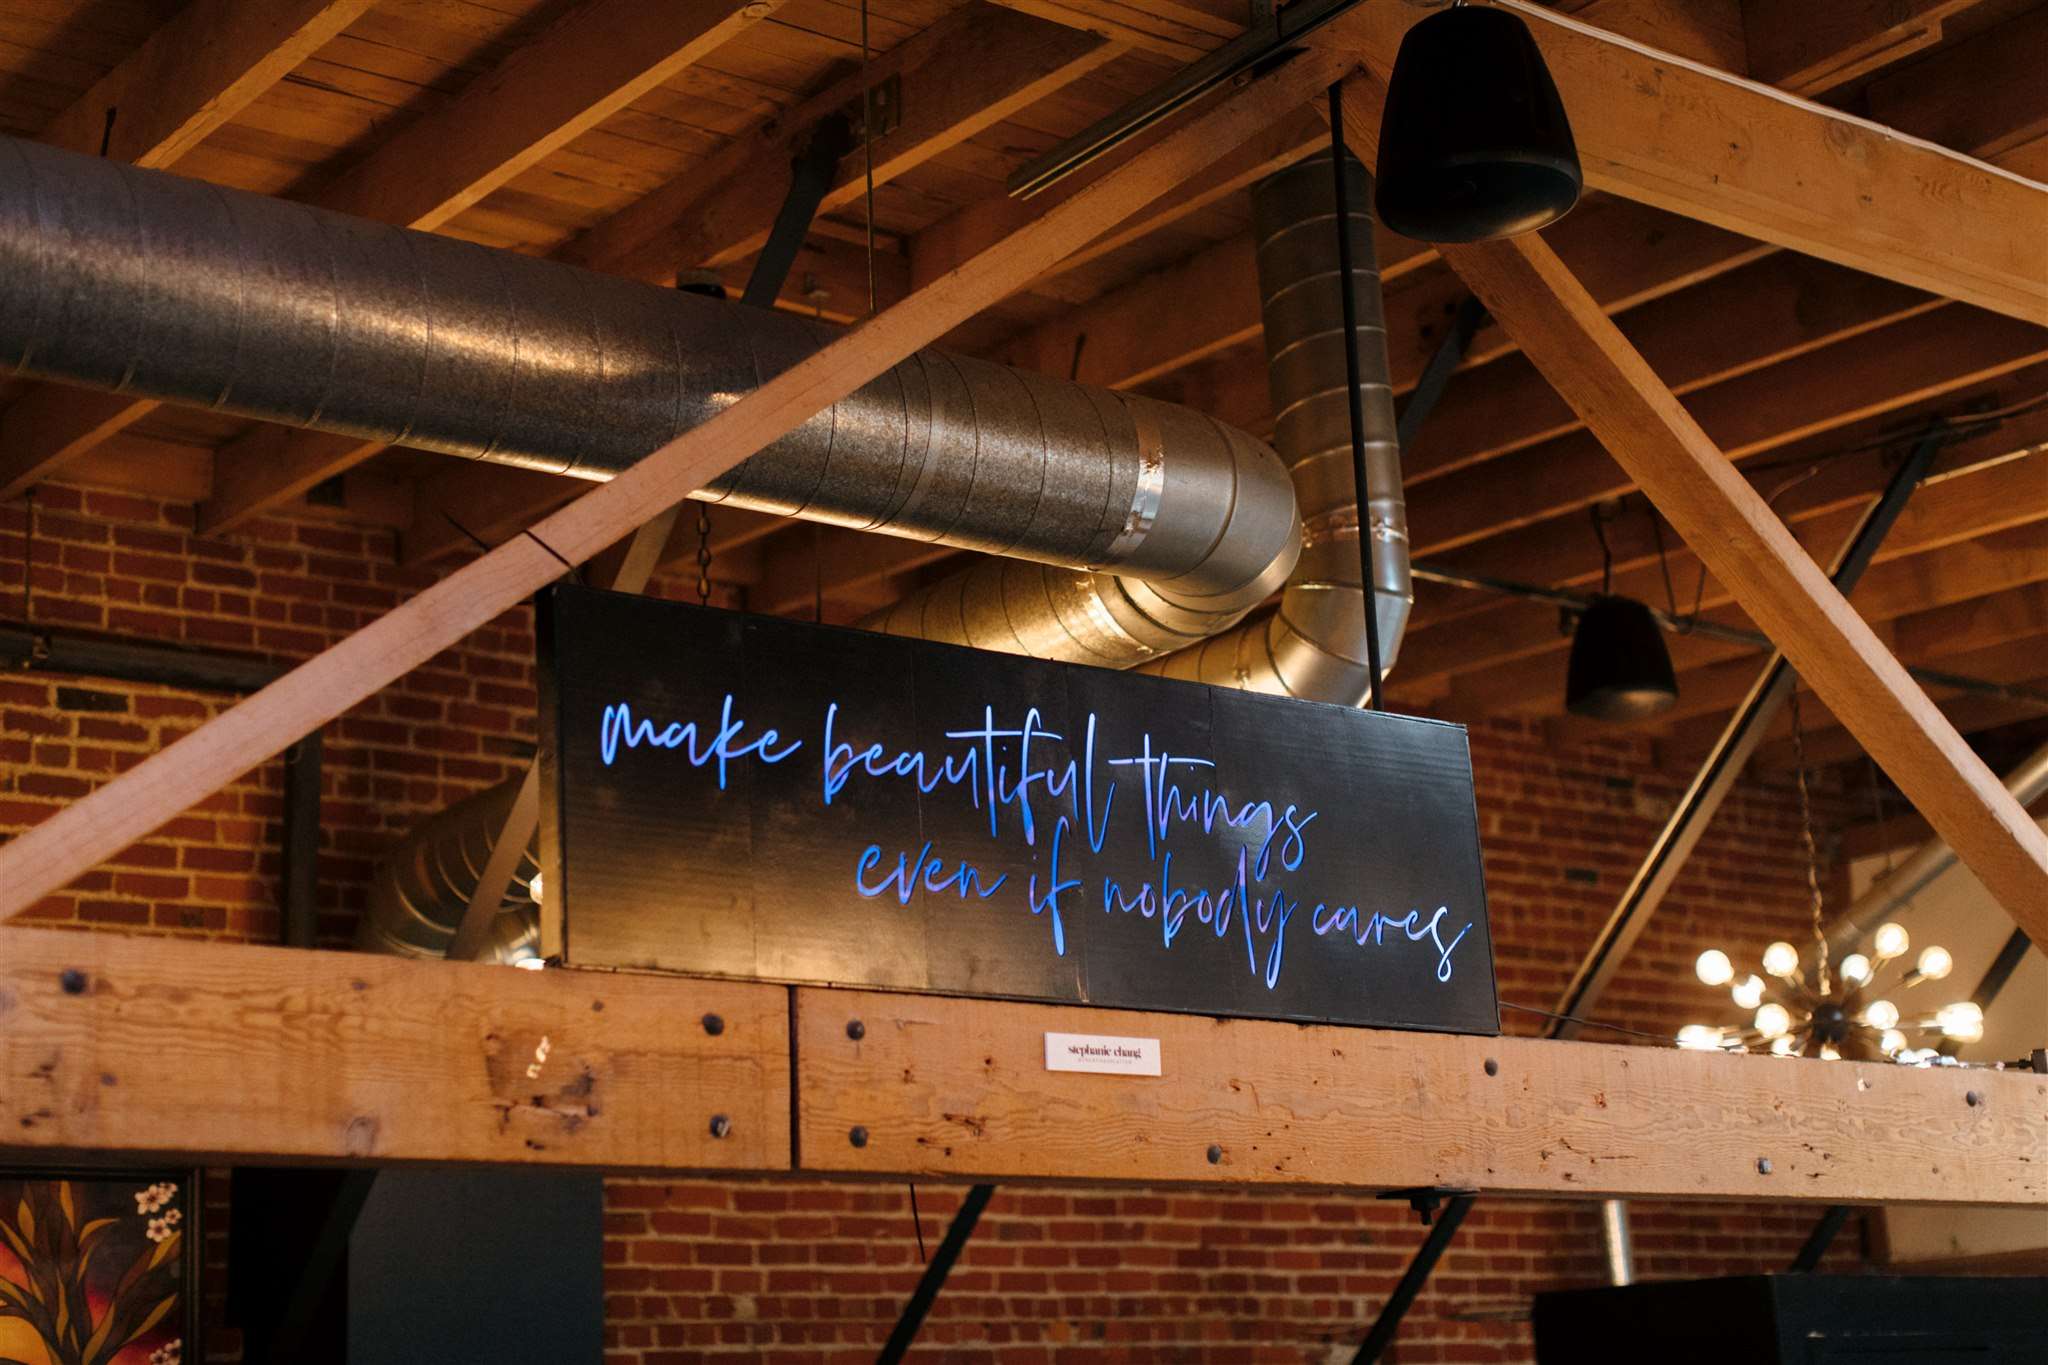 make beautiful things
even if nobody cares
stephanie chang